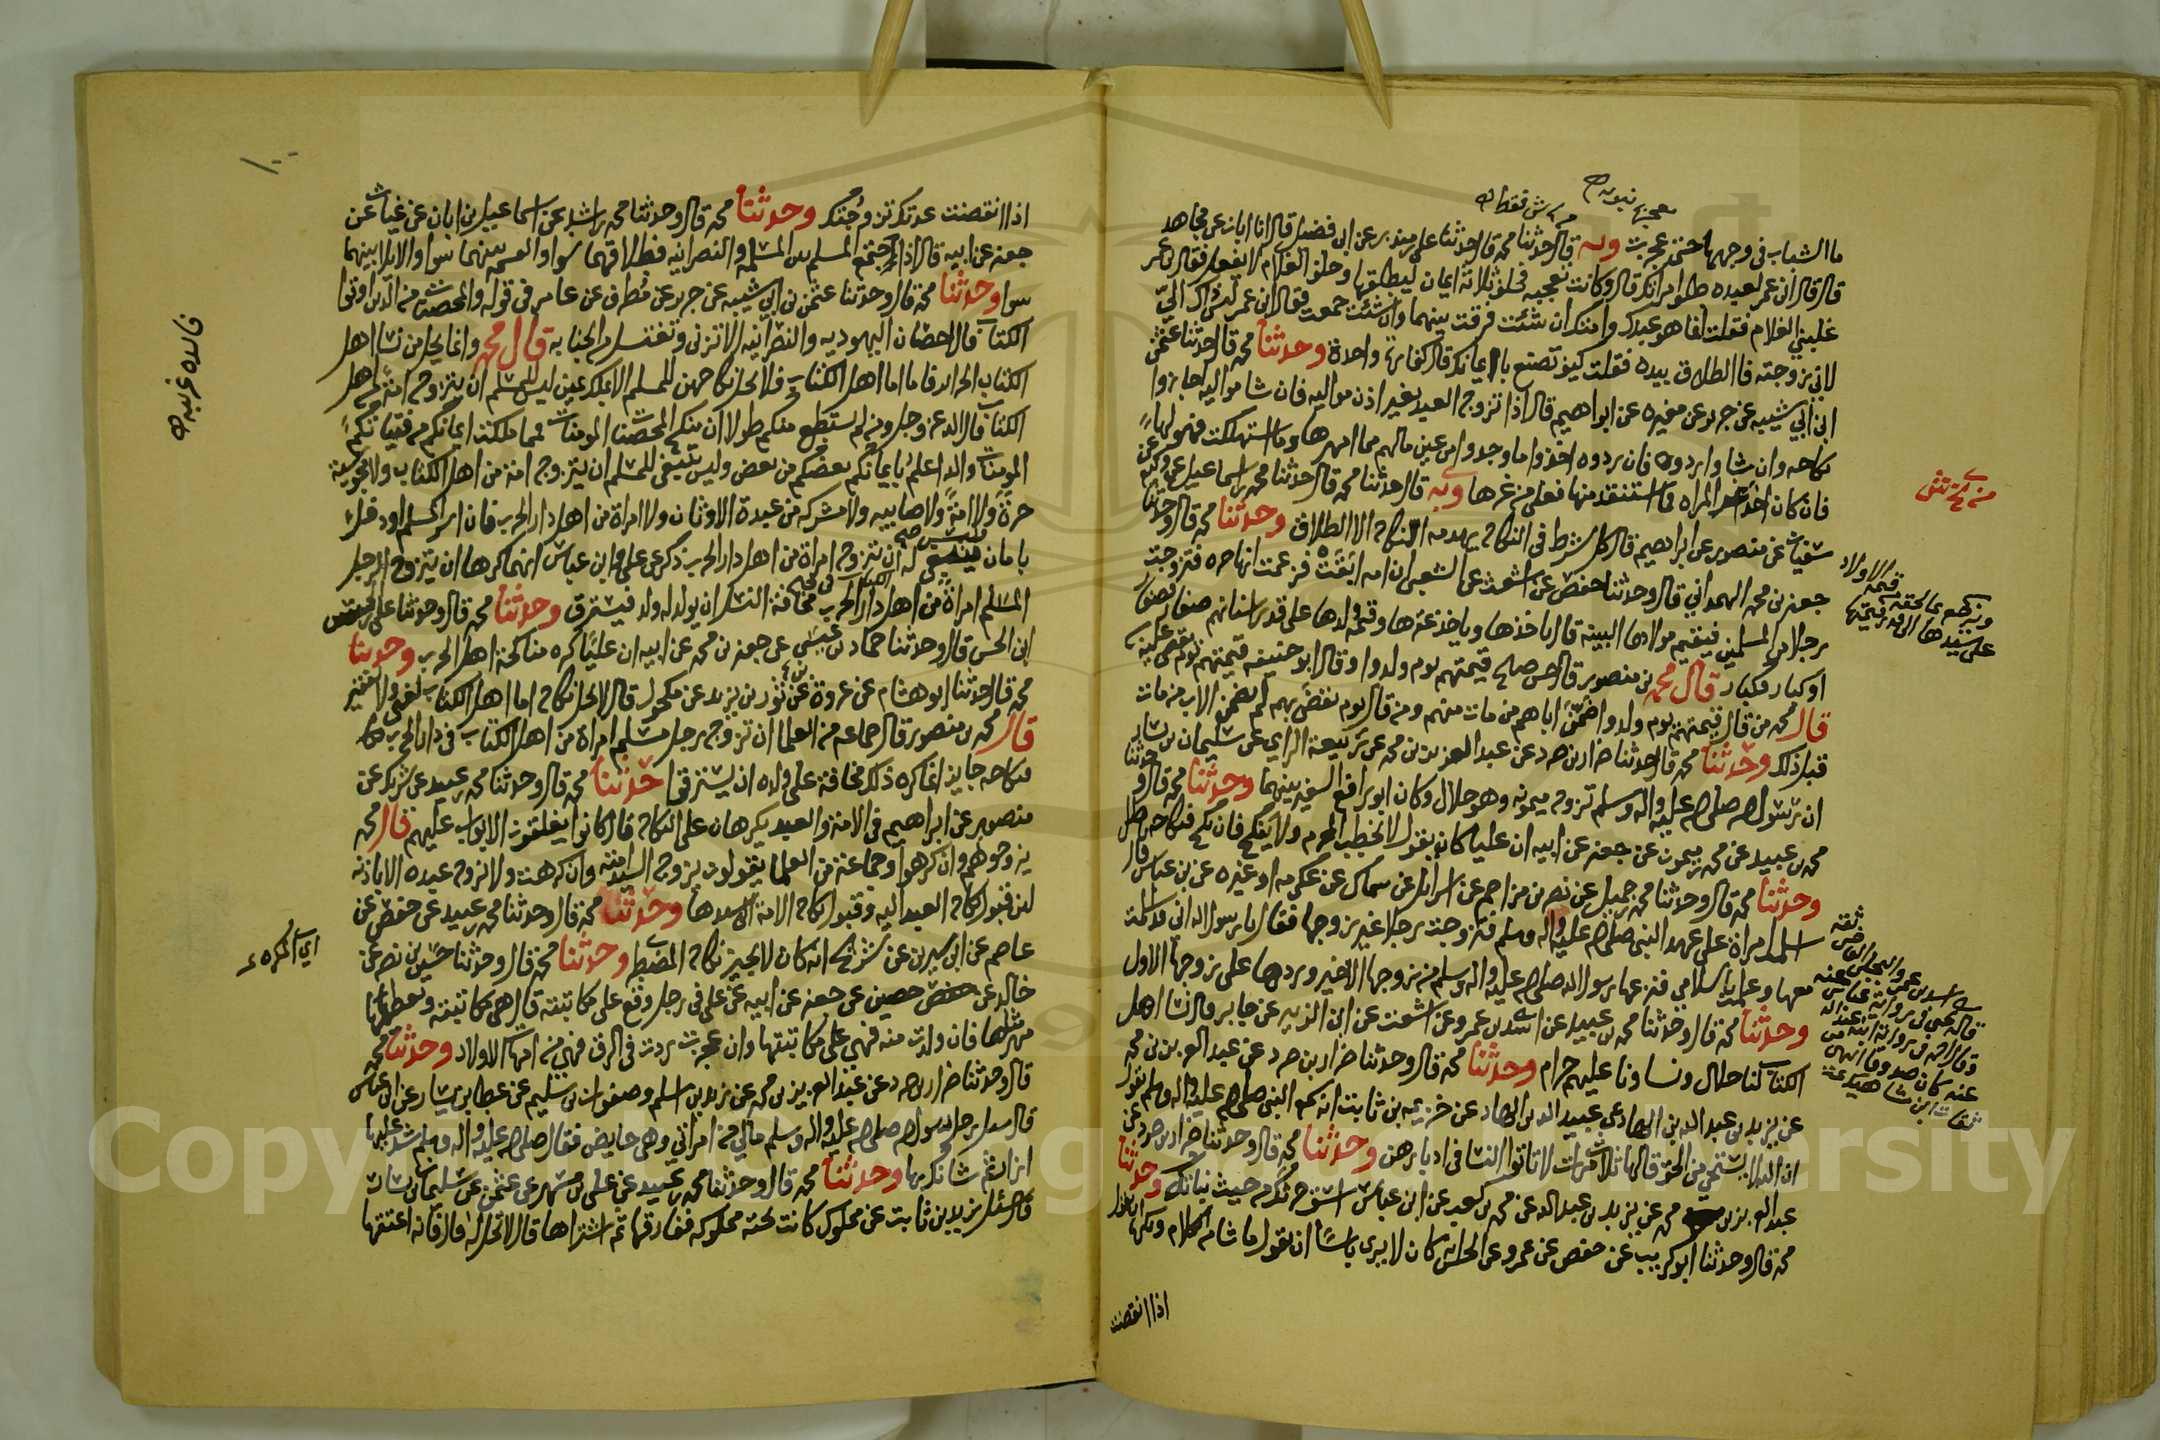 ما الشباب في وجهها حتى عجزت وبه قال حدثنا محمد قال حدثنا علي بن منذر عن ابن فضيل قال انا ابان عن مجاهد
قال قال ابن عمر لعبده طلق امراتك قال وكانت تعجبه فحلف ثلاثة ايمان ليطلقها وحلف الغلام لا يفعل فقال ابن عمر
غلبني الغلام فقلت انما هو عبدك وامتك ان شئت فرقت بينهما وان شئت جمعت فقال ابن عمر ليس ذاك الي
لاني زوجته فالطلاق بيده فقلت كيف تصنع بالايمان قال كفارة واحدة وحدثنا محمد قال حدثنا عثمان
ابن ابي شيبه عن جرير عن مغيره عن ابراهيم قال اذا تزوج العبد بغير اذن مواليه فان شا مواليه اجازوا
نكاحه وان شاوا ردوه فان ردوه اخذوا ما وجدوا من عين مالهم مما امهرها وما استهلكت فهو لها
فان كان اخذ المراه فاستنقذ منها فعلى من غرها وبه قال حدثنا محمد قال حدثنا محمد بن اسماعيل عن وكيع عن
سفيان عن منصور عن ابراهيم قال كل شرط في النكاح يهدمه النكاح الا الطلاق وحدثنا محمد قال وحدثنا
جعفر بن محمد الهمداني قال وحدثنا حفص عن اشعث عن الشعبي ان امه ابقت فزعمت انها حره فتزوجت
رجلا من المسلمين فيقيم مولاها البينة قال ياخذها وياخذ غرها وقيمة ولدها على قدر اسنانهم صغار فصغار
او كبار فكبار قال محمد بن منصور قال حسن بن صالح قيمتهم يوم ولدوا وقال ابو حنيفه قيمتهم يوم يقضى عليه
قال محمد من قال قيمتهم يوم ولدوا ضمن اباهم من مات منهم ومن قال يوم يقضى بهم لم يضمن الاب من مات
قبل ذلك وحدثنا محمد قال حدثنا ضرار بن صرد عن عبد العزيز بن محمد عن ربيعة الراي عن سليمان بن يسار
ان رسول الله صلى الله عليه واله وسلم تزوج ميمونه وهو حلال وكان ابو رافع السفير بينهما وحدثنا محمد قال وحدثنا
محمد بن عبيد عن محمد بن ميمون عن جعفر عن ابيه ان عليا كان يقول لا يخطب المحرم ولا ينكح فان نكح فنكاحه باطل
وحدثنا محمد قال وحدثنا محمد بن جميل عن نصر بن مزاحم عن اسرائيل عن سماك عن عكرمه او غيره عن بن عباس قال
اسلمت امراة على عهد النبي صلى الله عليه واله وسلم فتزوجت رجلا غير زوجها فقال يا رسول الله اني قد اسلمت
معها وعلمت باسلامي فنزعها رسول الله صلى الله عليه واله وسلم من زوجها الاخير وردها على زوجها الاول
وحدثنا محمد قال وحدثنا محمد بن عبيد عن اسد بن عمرو عن اشعث عن ابي الزبير عن جابر قال نسا اهل
الكتاب لنا حلال ونساونا عليهم حرام وحدثنا محمد قال وحدثنا ضرار بن صرد عن عبد العزيز بن محمد
عن يزيد بن عبد الله بن الهاد عن عبيد الله بن الهاد عن خزيمه بن ثابت انه سمع النبي صلى الله عليه واله وسلم يقول
ان الله لا يستحي من الحق قالها ثلاث مرات لا تاتوا النسا في ادبارهن وحدثنا محمد قال وحدثنا ضرار بن صرد عن
عبد العزيز بن محمد عن يزيد بن عبد الله عن محمد بن كعب عن ابن عباس اسق حرثك من حيث نباتك وحدثنا
محمد قال وحدثنا ابو كريب عن حفص عن عمرو عن الحسن كان لا يرى باسا ان يقول ما شا من الكلام ويكره ان يقول
اذا انقضت
ويرجع بما لحقه من قيمة الاولاد
على سيدها الى قدر قيمتها
١٠٠
اذا انقضت عدتك تزوجتك وحدثنا محمد قال وحدثنا محمد بن راشد عن اسماعيل بن ابان عن غياث عن
جعفر عن ابيه قال اذا اجتمع المسلم بين المسلمه والنصرانيه فطلاقهما سوا والقسمه بينهما سوا والايلا بينهما
سوا وحدثنا محمد قال وحدثنا عثمن بن ابي شيبه عن جرير عن مطرف عن عامر في قوله والمحصنات من الذين اوتوا
الكتاب قال احصان اليهوديه والنصرانيه الا تزني وتغتسل من الجنابه قال محمد وانما يحل من نسا اهل
الكتاب الحراير فاما اما اهل الكتاب فلا يحل نكاحهن للمسلم الا بملك يمين ليس للمسلم ان يتزوج امة من اهل
الكتاب قال الله عز وجل ومن لم يستطع منكم طولا ان ينكح المحصنات المومنات فمما ملكت ايمانكم من فتياتكم
المومنات والله اعلم بايمانكم بعضكم من بعض وليس ينبغي للمسلم ان يتزوج امة من اهل الكتاب ولا مجوسية
حرة ولا امة ولا صابيه ولا مشركه من عبدة الاوثان ولا امراة من اهل دار الحرب فان اسر المسلم او دخل
بامان فليس ينبغي له ان يتزوج امراة من اهل دار الحرب ذكر عن علي وابن عباس انهما كرها ان يتزوج الرجل
المسلم امراة من اهل الكتاب في دار الحرب مخافة النسل ان يولد له ولد فيسترق وحدثنا محمد قال وحدثنا علي
ابن الحسن قال وحدثنا حماد بن عيسى عن جعفر بن محمد عن ابيه ان عليا كره مناكحة اهل الحرب وحدثنا
محمد قال حدثنا ابو هشام عن عروة عن ثور بن يزيد عن مكحول قال لا يحل نكاح اما اهل الكتاب لغني ولا فقير
قال محمد بن منصور قال جماعه من العلما ان تزوج رجل مسلم امراة من اهل الكتاب في دار الحرب
نكاحه جايز انما كره ذلك مخافة على ولده ان يسترق حدثنا محمد قال وحدثنا محمد بن عبيد عن شريك عن
منصور عن ابراهيم في الامة والعبد يكرهان على النكاح قال كانوا يغلقون الابواب عليهم قال محمد
يزوجوهم وان كرهوا وجماعة من العلما يقولون يزوج السيد امته وان كرهت ولا يزوج عبده الا باذنه
لان قبول نكاح العبد اليه وقبول نكاح الامة الى سيدها وحدثنا محمد قال وحدثنا محمد بن عبيد عن حفص عن
عاصم عن ابن سيرين عن شريح انه كان لا يجيز نكاح المضطر وحدثنا محمد قال وحدثنا حسين بن نصر عن
خالد عن حصين عن جعفر عن ابيه عن علي في رجل وقع على مكاتبته قال هي مكاتبته ويعطيها
مهر مثلها فان ولدت منه فهي على مكاتبتها وان عجزت ردت في الرق فهي من امهات الاولاد وحدثنا محمد
قال وحدثنا ضرار بن صرد عن عبد العزيز بن محمد عن زيد بن اسلم وصفوان بن سليم عن عطا بن يسار عن ابن عباس
قال سال رجل رسول الله صلى الله عليه واله وسلم ما لي من امراتي وهي حايض فقال صلى الله عليه واله وسلم شد عليها
ازارا ثم شانك بها وحدثنا محمد قال وحدثنا محمد بن عبيد عن علي بن مسهر عن عثمن عن سليمان بن يسار
قال سئل زيد بن ثابت عن مملوك كانت تحته مملوكه ففارقها ثم اشتراها قال لا تحل له قال فانه اعتقها
فائده غريبه
اي المكره